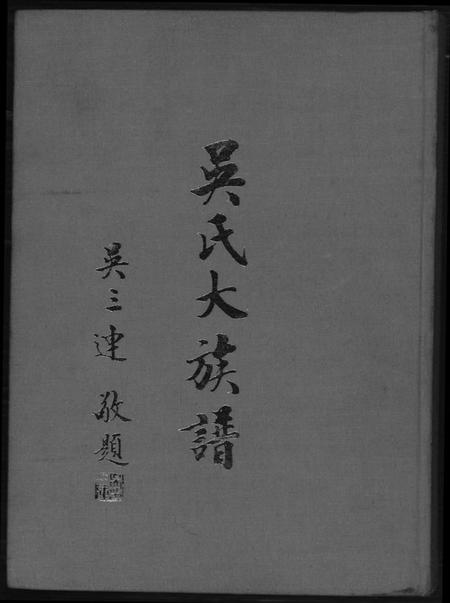 吳氏大族譜
吳三連 敬題